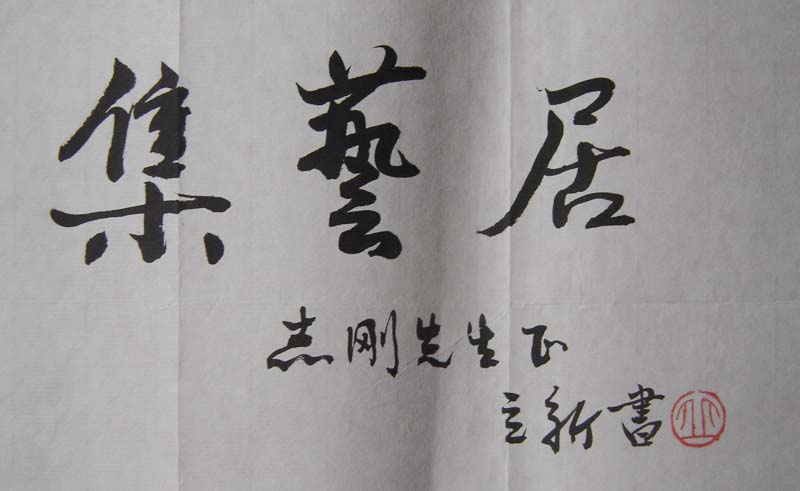 集藝居
志刚先生正
立新書